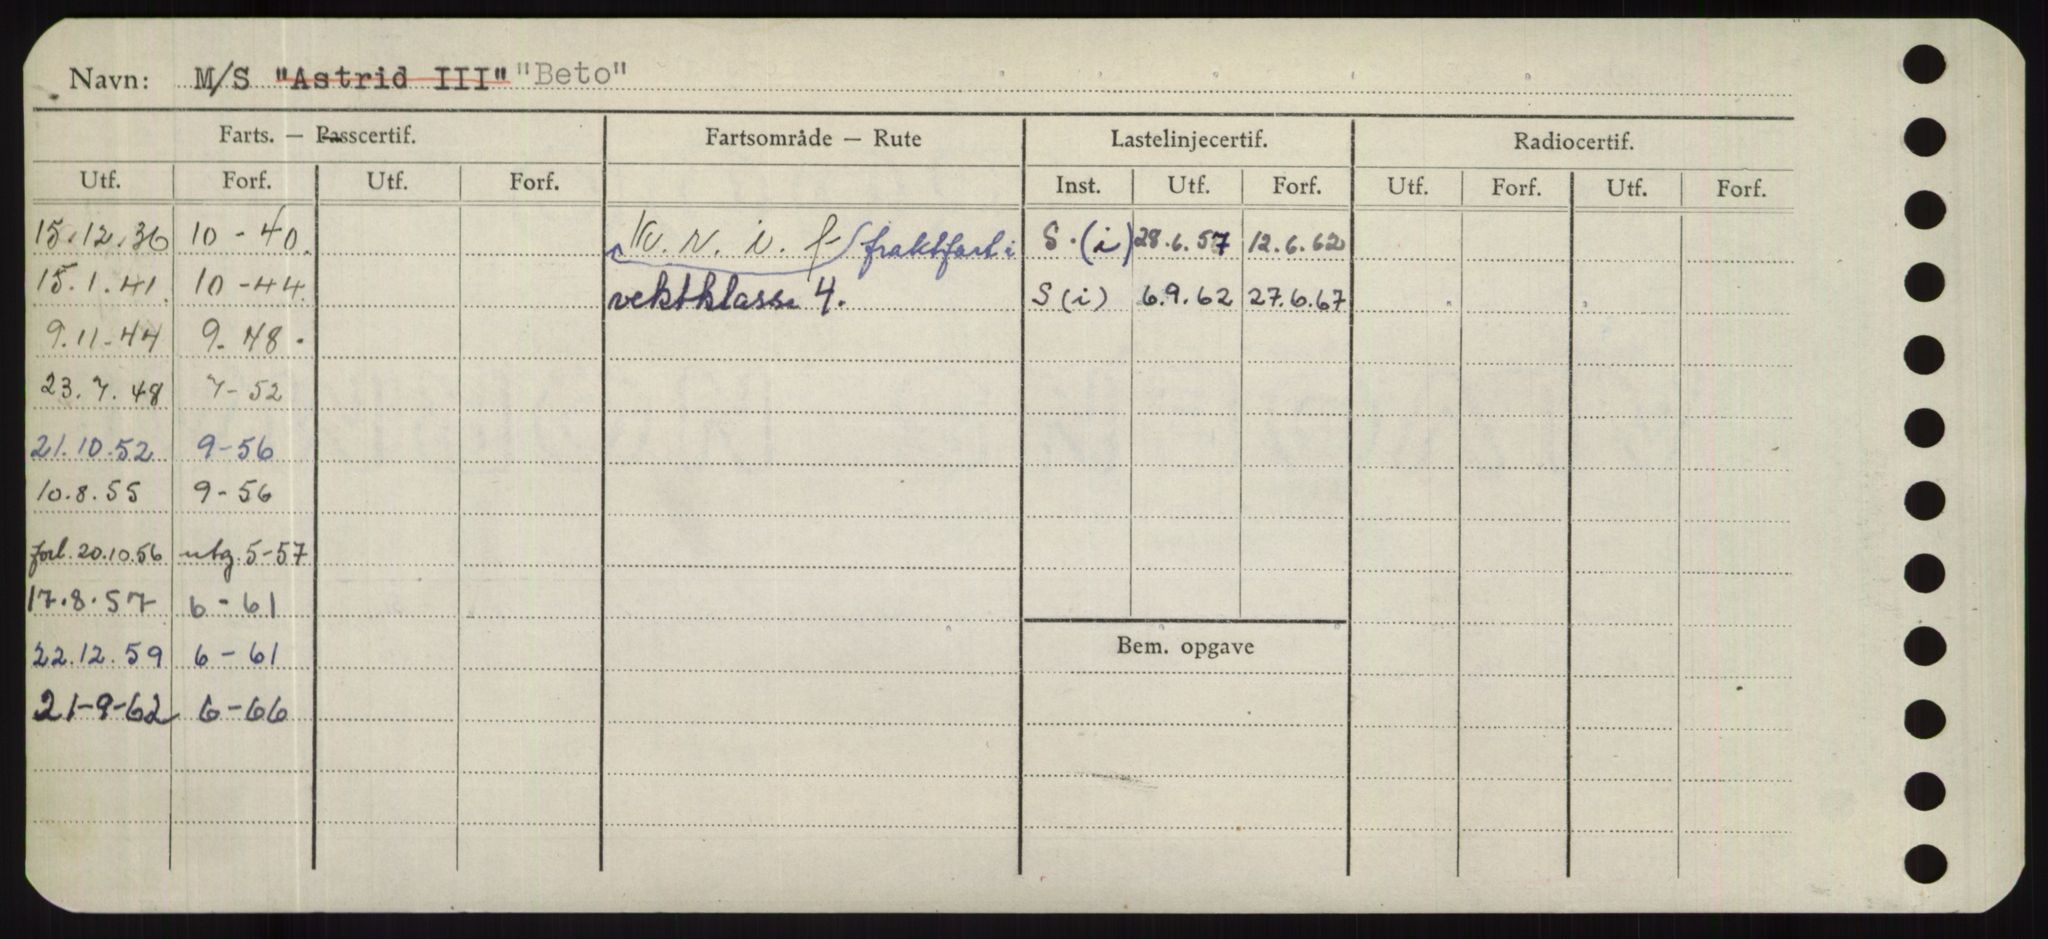 Navn: M/S "Astrid III" "Beto"
Farts. — Passcertif. Fartsområde — Rute Lastelinjecertif. Radiocertif.
Utf. Forf. Utf. Forf. Inst. Utf. Forf. Utf. Forf. Utf. Forf.
15.12.36 10-40. fraktfart i S.(i) 28.6.57 12.6.62
15.1.41 10-44 vektklasse 4. S(i) 6.9.62 27.6.67
9.11-44 9-48.
23.7.48 7-52
21.10.52 9-56
10.8.55 9-56
forl. 20.10.56 utg. 5-57
17.8.57 6-61
Bem. opgave
22.12.59 6-61
21-9-62 6-66